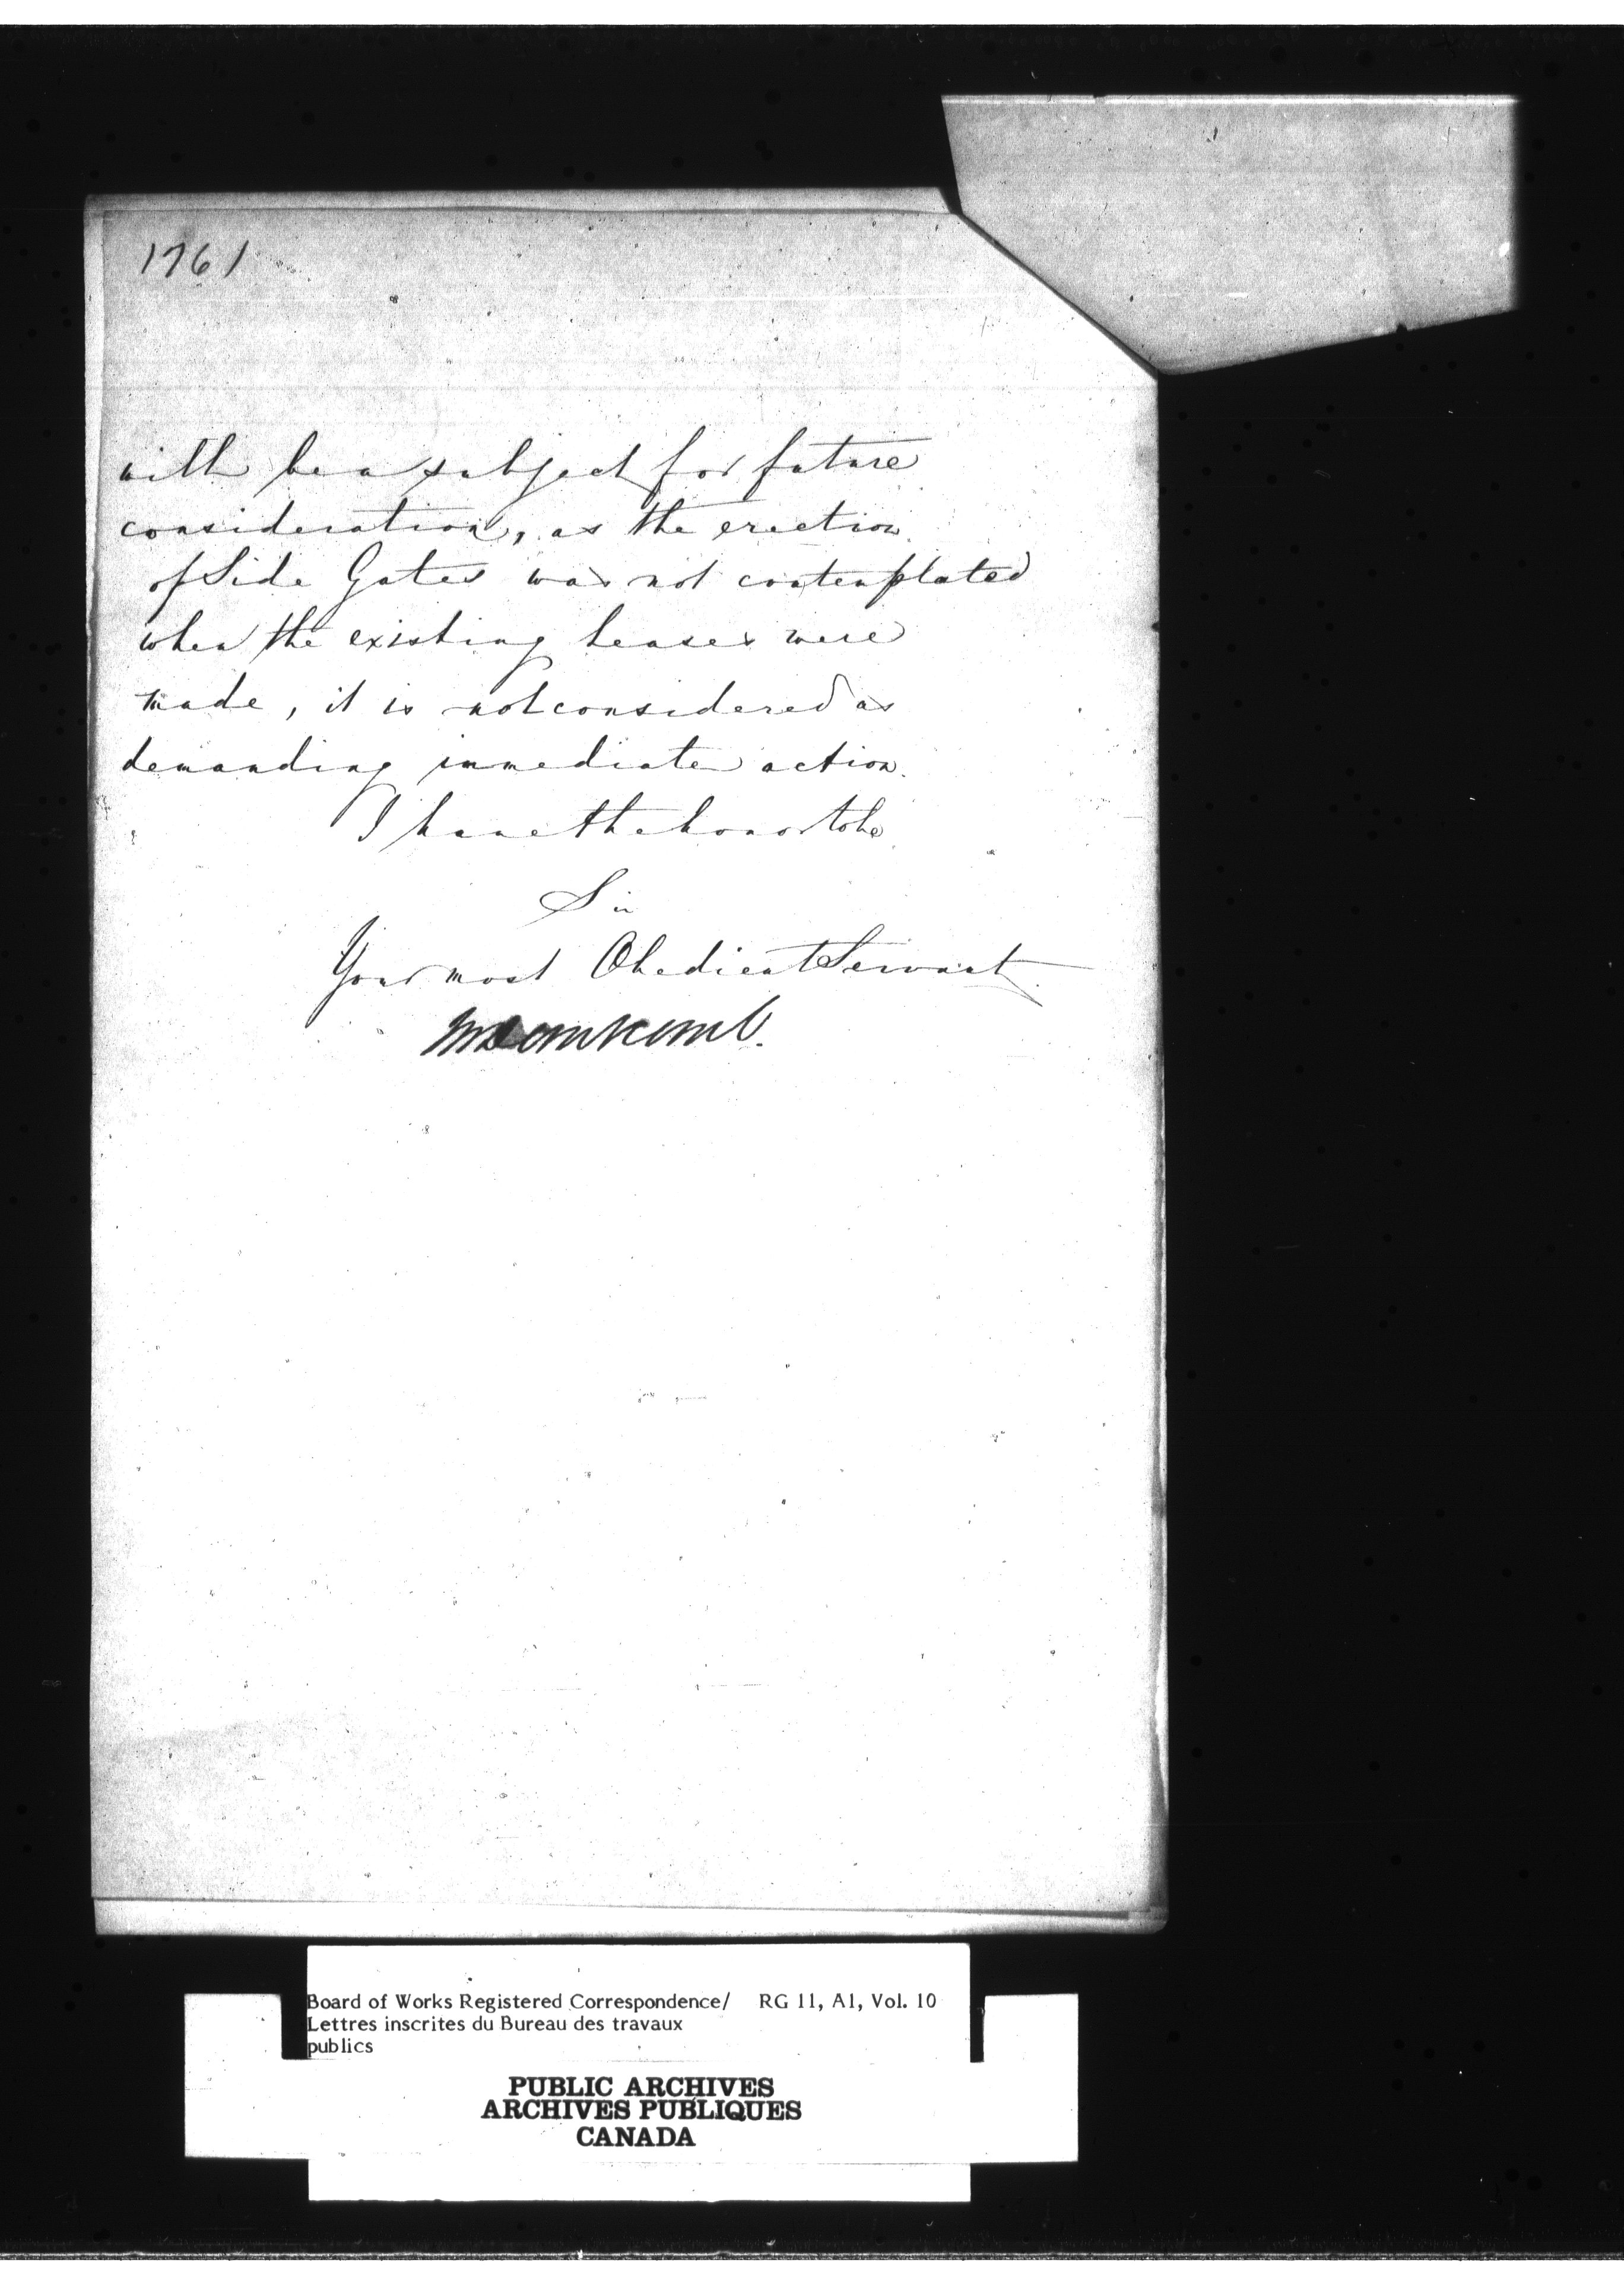 1761
will be a subject for future
consideration, as the erection
of Side Gates was not contemplated
when the existing leases were
made, it is not considered as
demanding immediate action.
I have the honor to be
Sir
Your most Obedient Servant
Board of Works Registered Correspondence/ RG 11, A1, Vol. 10
Lettres inscrites du Bureau des travaux
publics
PUBLIC ARCHIVES
ARCHIVES PUBLIQUES
CANADA